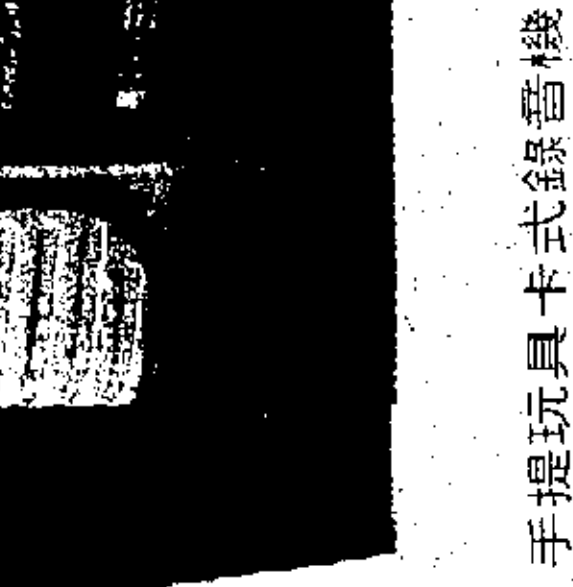 手提玩具卡式錄音機